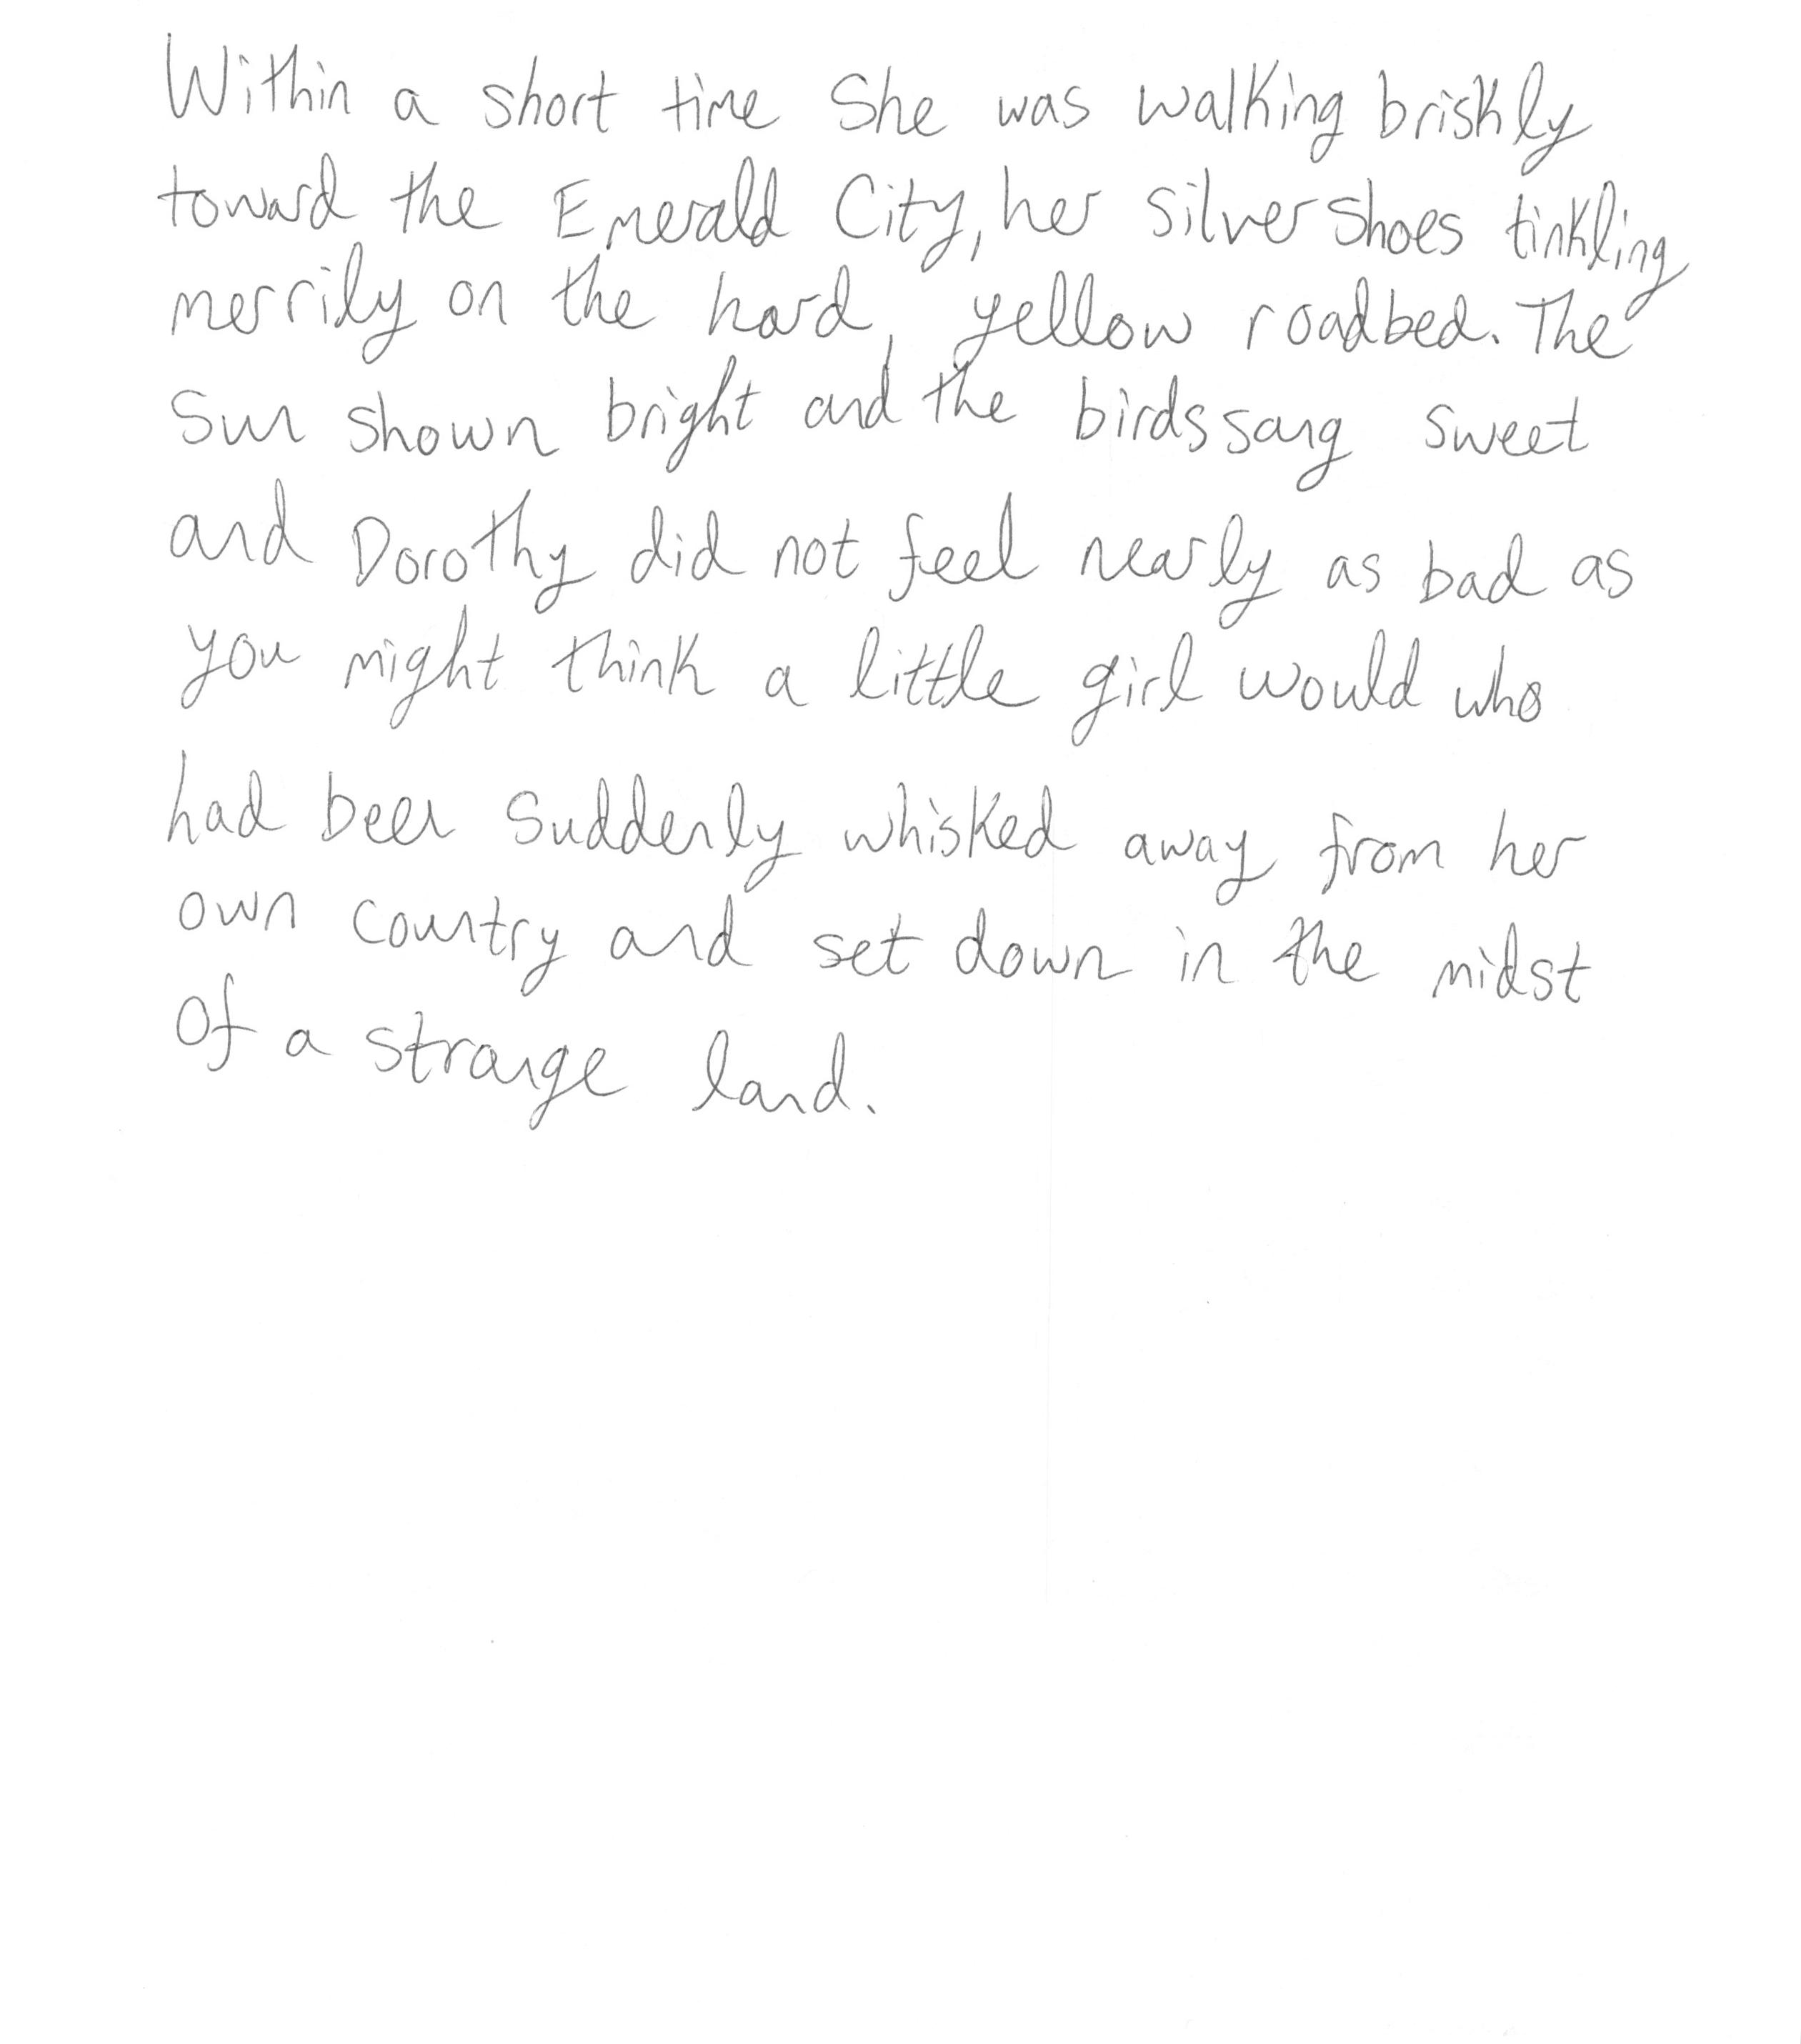 Within a short time she was walking briskly
toward the Emerald City, her silver shoes tinkling
merrily on the hard, yellow roadbed. The
sun shown bright and the birds sang sweet
and Dorothy did not feel nearly as bad as
you might think a little girl would who
had been suddenly whisked away from her
own country and set down in the midst
of a strange land.